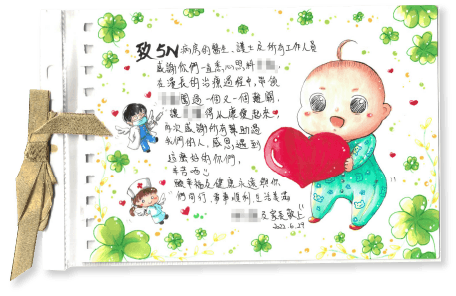 致5N病房的醫生、護士及所有工作人員
感謝你們一直悉心照料
在漫長的治療過程中,帶領
闖過一個又一個難關,
讓 得以康健起來,
再次感謝所有幫助過
我們的人,感恩遇到
這麼好的你們,
辛苦晒心
願幸福及健康永遠與你
們同行,事事順利,生活美滿
及家長敬上
2022.6.29